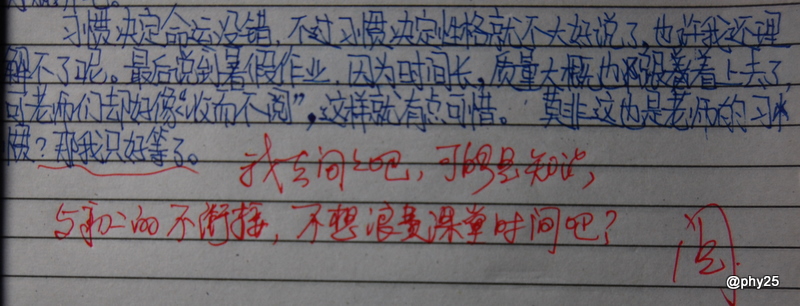 习惯决定命运没错，不过习惯决定性格就不大好说了，也许我还理
解不了呢。最后说到暑假作业，因为时间长，质量大概也都跟着上去了，
可老师们却好像“收而不阅”，这样就有点可惜。莫非这也是老师的习
惯？那我只好等了。
我去问问吧，可能是知识，
与初二的不衔接，不想浪费课堂时间吧？
阅
@phy25